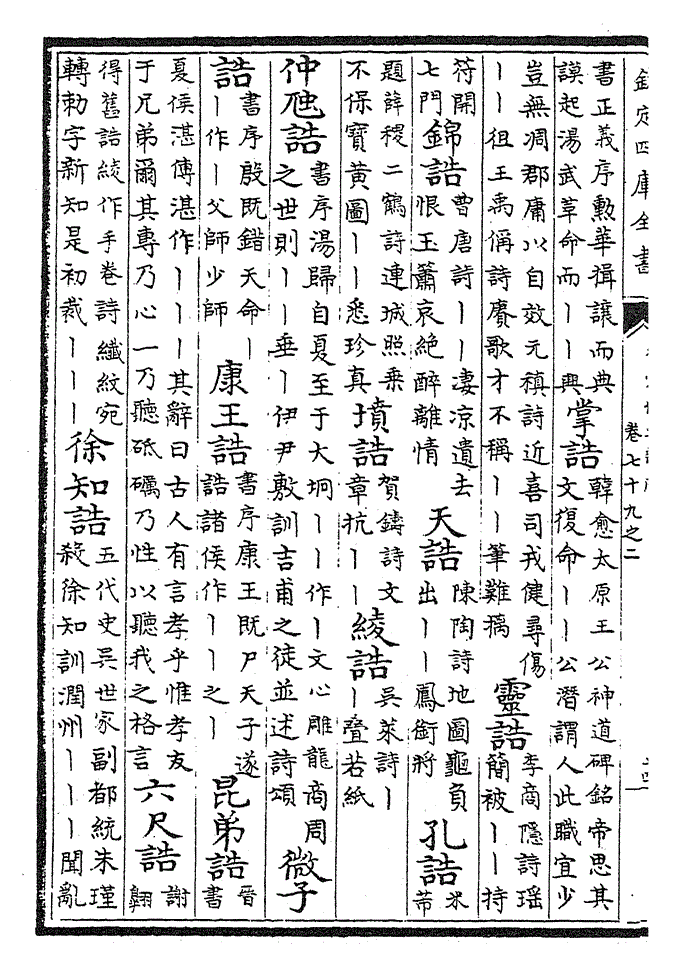 欽定四庫全書
卷七十九之二
書正義序勲華揖讓而典
謨起湯武革命而丨丨興
掌誥
韓愈太原王公神道碑銘帝思其
文復命丨丨公潛謂人此職宜少
豈無凋郡庸以自效元稹詩近喜司戎健尋傷
丨丨徂王禹偁詩賡歌才不稱丨丨筆難搞
靈誥
李商隱詩瑶
簡被丨丨持
符開
七門
錦誥
曹唐詩丨丨凄涼遺去
恨玉簫哀絶醉離情
天誥
陳陶詩地圖龜負
出丨丨鳳銜將
孔誥
米
芾
題薛稷二鶴詩連城照乘
不保寶黄圖丨丨悉珍真
墳誥
賀鑄詩文
章抗丨丨
綾誥
吳萊詩丨
丨疊若紙
仲虺誥
書序湯歸自夏至于大坰丨丨作丨文心雕龍商周
之世則丨丨垂丨伊尹敷訓吉甫之徒並述詩頌
微子
誥
書序殷既錯天命丨
丨作丨父師少師
康王誥
書序康王既尸天子遂
誥諸侯作丨丨之丨
昆弟誥
晉
書
夏侯湛傳湛作丨丨丨其辭曰古人有言孝乎惟孝友
于兄弟爾其專乃心一乃聽砥礪乃性以聽我之格言
六尺誥
謝
翱
得舊誥綾作手卷詩纖紋宛
轉勅字新知是初裁丨丨丨
徐知誥
五代史吳世家副都統朱瑾
殺徐知訓潤州丨丨丨聞亂